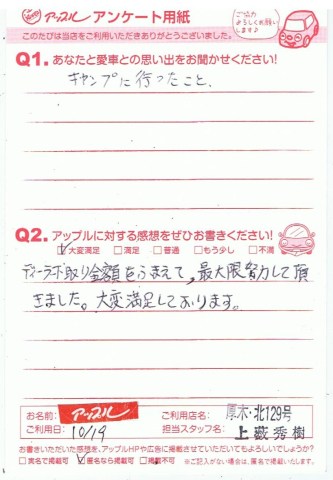 アップル アンケート用紙
ご協力よろしくお願いします♪
このたびは当店をご利用いただきありがとうございました。
Q1. あなたと愛車との思い出をお聞かせください!
キャンプに行ったこと、
Q2. アップルに対する感想をぜひお書きください!
☑大変満足 □満足 □普通 □もう少し □不満
ディーラー下取り金額をふまえて,最大限努力して頂
きました。大変満足しております。
お名前: アップル ご利用店名: 厚木・北129号
ご利用日: 10/19 担当スタッフ名: 上藪秀樹
お書きいただいた感想を、アップルHPや広告に掲載させていただいてもよろしいでしょうか?
□実名で掲載可 ☑匿名なら掲載可 □掲載不可 ※ご記入がない場合は、匿名で掲載いたします。